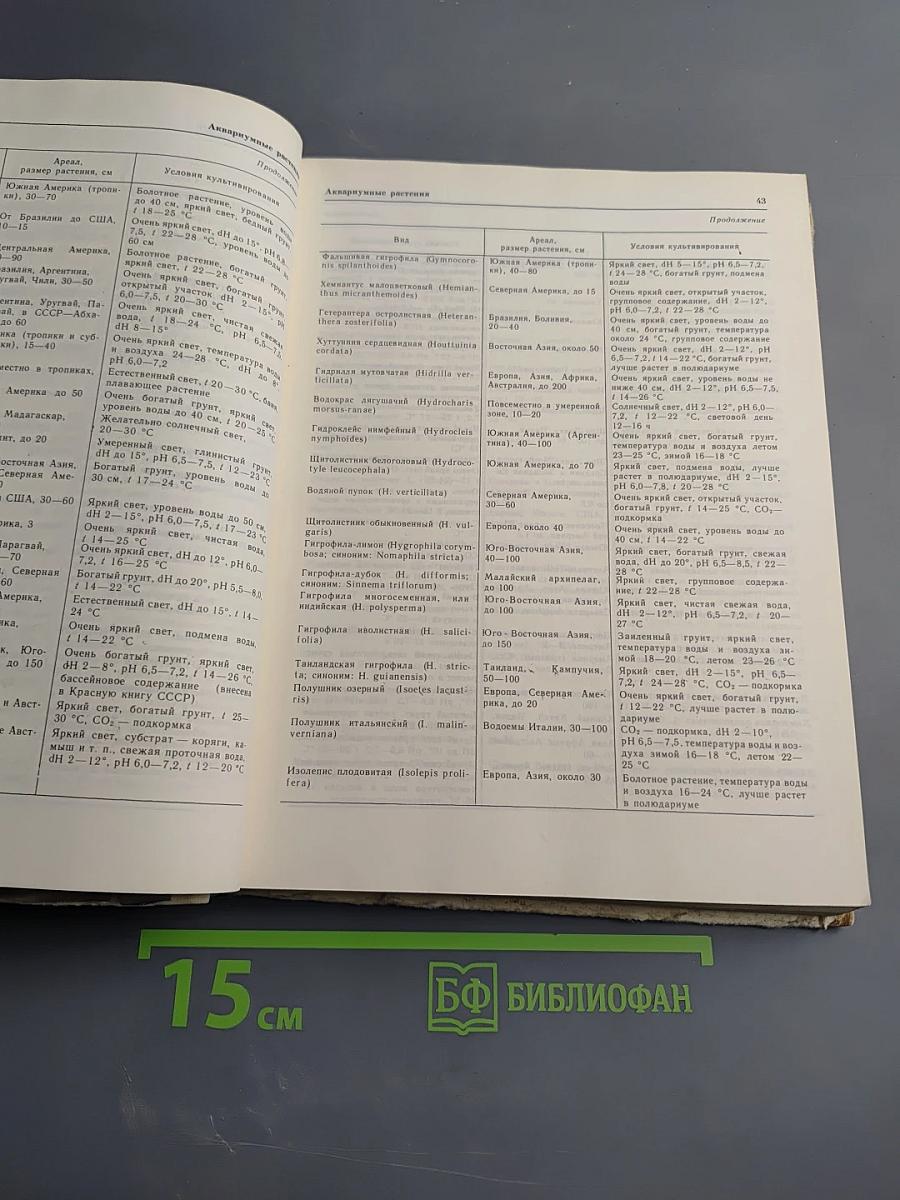 Аквариумные
Продолжение
Ареал,
размер растения, см
Условия культивирования
Южная Америка (тропи-
ки), 30—70
От Бразилии до США,
10—15
Центральная Америка,
Аргентина,
Чили, 30—50
Уругвай, Па-
в СССР—Абха-
до 60
(тропики и суб-
15—40
в тропиках,
Америка до 50
Мадагаскар,
до 20
Азия,
США, 30—60
Парагвай,
Северная
60
Америка,
Юго-
до 150
и Авст-
Авст-
Болотное растение, уровень воды
до 40 см, яркий свет, бедный грунт
t 18—25 °C
Очень яркий свет, dH до 15°, pH 6,8
7,5, t 22—28 °C, уровень воды до
60 см
Болотное растение, богатый грунт,
яркий свет, t 22—28 °C
Очень яркий свет, богатый грунт,
открытый участок dH 2—15°, pH
6,0—7,5, t 20—30 °C
Очень яркий свет, чистая свежая
вода, t 18—24 °C, pH 6,5—7,5,
dH 8—15°
Очень яркий свет, температура воды
и воздуха 24—28 °C, dH до 8°
pH 6,0—7,2
Естественный свет, t 20—30 °C,
плавающее растение
Очень богатый грунт, яркий свет,
уровень воды до 40 см, t 20—25 °C
Желательно солнечный свет,
20—30 °C
Умеренный свет, глинистый грунт,
dH до 15°, pH 6,5—7,5, t 12—23 °C
Богатый грунт, уровень воды до
30 см, t 17—24 °C
Яркий свет, уровень воды до 50 см,
dH 2—15°, pH 6,0—7,5, t 17—23 °C
Очень яркий свет, чистая вода,
t 14—25 °C
Очень яркий свет, dH до 12°, pH 6,0—
7,2, t 16—25 °C
Богатый грунт, dH до 20°, pH 5,5—8,0,
t 14—22 °C
Естественный свет, dH до 15°, t 14—
24 °C
Очень яркий свет, подмена воды,
t 14—22 °C
Очень богатый грунт, яркий свет,
dH 2—8°, pH 6,5—7,2, t 14—26 °C,
бассейновое содержание (внесена
в Красную книгу СССР)
Яркий свет, богатый грунт, t 25—
30 °C, CO₂ — подкормка
Яркий свет, субстрат — коряги, ка-
мыш и т. п., свежая проточная вода,
dH 2—12°, pH 6,0—7,2, t 12—20 °C
Аквариумные растения
43
Продолжение
Вид
Ареал,
размер растения, см
Условия культивирования
Фальшивая гигрофила (Gymnocoro-
nis spilanthoides)
Южная Америка (тропи-
ки), 40—80
Яркий свет, dH 5—15°, pH 6,5—7,2,
t 24—28 °C, богатый грунт, подмена
воды
Хемиантус малоцветковый (Hemian-
thus micranthemoides)
Северная Америка, до 15
Очень яркий свет, открытый участок,
групповое содержание, dH 2—12°,
pH 6,0—7,2, t 22—28 °C
Гетерантера остролистная (Heteran-
thera zosterifolia)
Бразилия, Боливия,
20—40
Очень яркий свет, уровень воды до
40 см, богатый грунт, температура
около 24 °C, групповое содержание
Хуттуиния сердцевидная (Houttuinia
cordata)
Восточная Азия, около 50
Очень яркий свет, dH 2—12°, pH
6,5—7,2, t 14—22 °C, богатый грунт,
лучше растет в полюдариуме
Гидрилля мутовчатая (Hidrilla ver-
ticillata)
Европа, Азия, Африка,
Австралия, до 200
Очень яркий свет, уровень воды не
ниже 40 см, dH 2—12°, pH 6,5—7,5,
t 14—26 °C
Водокрас лягушачий (Hydrocharis
morsus-ranae)
Повсеместно в умеренной
зоне, 10—20
Солнечный свет, dH 2—12°, pH 6,0—
7,2, t 12—22 °C, световой день
12—16 ч
Гидроклейс нимфейный (Hydrocleis
nymphoides)
Южная Америка (Арген-
тина), 40—100
Очень яркий свет, богатый грунт,
температура воды и воздуха летом
23—25 °C, зимой 16—18 °C
Щитолистник белоголовый (Hydroco-
tyle leucocephala)
Южная Америка, до 70
Яркий свет, подмена воды, лучше
растет в полюдариуме, dH 2—15°,
pH 6,0—7,8, t 20—28 °C
Водяной пупок (H. verticillata)
Северная Америка,
30—60
Очень яркий свет, открытый участок,
богатый грунт, t 14—25 °C, CO₂—
подкормка
Щитолистник обыкновенный (H. vul-
garis)
Европа, около 40
Очень яркий свет, уровень воды до
40 см, t 14—22 °C
Гигрофила-лимон (Hygrophila corym-
bosa; синоним: Nomaphila stricta)
Юго-Восточная Азия,
40—100
Яркий свет, богатый грунт, свежая
вода, dH до 20°, pH 6,5—8,5, t 22—
28 °C
Гигрофила-дубок (H. difformis;
синоним: Sinnema triflorum)
Малайский архипелаг,
до 100
Яркий свет, групповое содержа-
ние, t 22—28 °C
Гигрофила многосеменная, или
индийская (H. polysperma)
Юго-Восточная Азия,
до 100
Яркий свет, чистая свежая вода,
dH 2—12°, pH 6,5—7,2, t 20—
27 °C
Гигрофила иволистная (H. salici-
folia)
Юго-Восточная Азия,
до 150
Заиленный грунт, яркий свет,
температура воды и воздуха зи-
мой 18—20 °C, летом 23—26 °C
Таиландская гигрофила (H. stric-
ta; синоним: H. guianensis)
Таиланд, Кампучия,
50—100
Яркий свет, dH 2—15°, pH 6,5—
7,2, t 24—28 °C, CO₂ — подкормка
Полушник озерный (Isoetes lacust-
ris)
Европа, Северная Аме-
рика, до 20
Очень яркий свет, богатый грунт,
t 12—22 °C, лучше растет в полю-
дариуме
Полушник итальянский (I. malin-
verniana)
Водоемы Италии, 30—100
CO₂ — подкормка, dH 2—10°,
pH 6,5—7,5, температура воды и воз-
духа зимой 16—18 °C, летом 22—
25 °C
Изолепис плодовитая (Isolepis proli-
fera)
Европа, Азия, около 30
Болотное растение, температура воды
и воздуха 16—24 °C, лучше растет
в полюдариуме
15 см
БФ БИБЛИОФАН